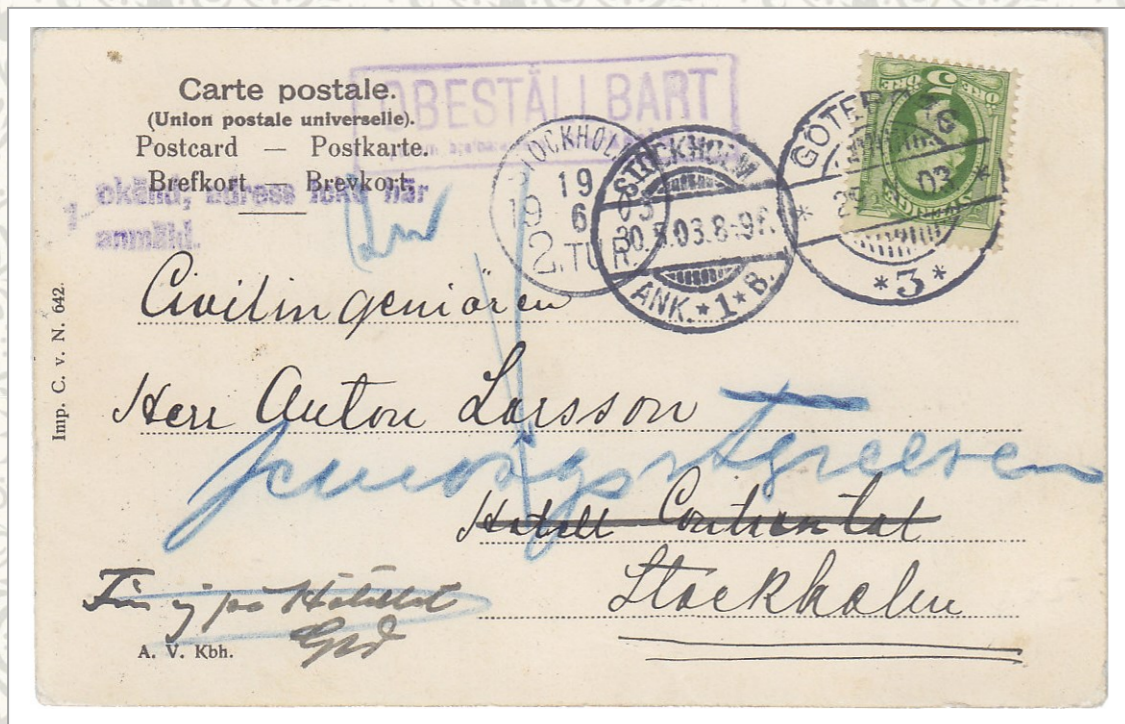 Carte postale.
(Union postale universelle).
Postcard — Postkarte.
Brefkort — Brevkort.
OBESTÄLLBART
okänd, adress icke här
anmäld.
STOCKHOLM
19
19 6 03
2.TUR.
STOCKHOLM
30.5.03.8-9F.
ANK.*1*B.
GÖTEBORG
03
*3*
5
ÖRE
SVERIGE
Civilingeniören
Herr Anton Larsson
Hotell Continental
Stockholm
ej på Hotellet
Imp. C. v. N. 642.
A. V. Kbh.